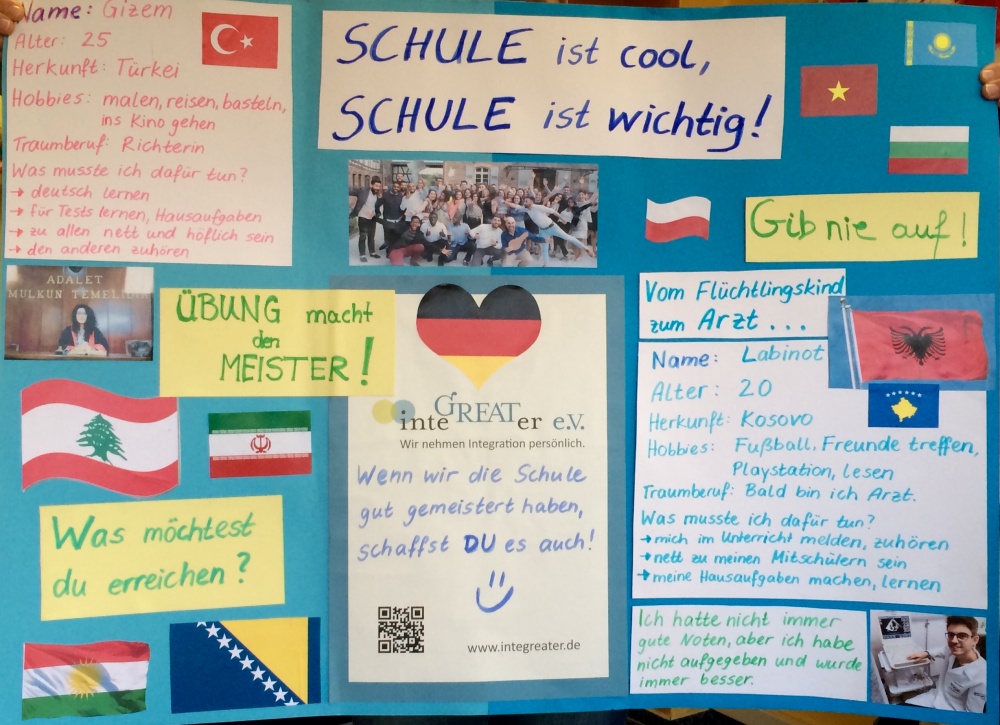 Name: Gizem
Alter: 25
Herkunft: Türkei
Hobbies: malen, reisen, basteln,
ins Kino gehen
Traumberuf: Richterin
Was musste ich dafür tun?
→ deutsch lernen
→ für Tests lernen, Hausaufgaben
→ zu allen nett und höflich sein
→ den anderen zuhören
SCHULE ist cool,
SCHULE ist wichtig!
Gib nie auf!
ADALET
MÜLKÜN TEMELİDİR
ÜBUNG macht
den
MEISTER!
inteGREATer e.V.
Wir nehmen Integration persönlich.
Wenn wir die Schule
gut gemeistert haben,
schaffst DU es auch!
www.integreater.de
Was möchtest
du erreichen?
Vom Flüchtlingskind
zum Arzt...
Name: Labinot
Alter: 20
Herkunft: Kosovo
Hobbies: Fußball, Freunde treffen,
Playstation, lesen
Traumberuf: Bald bin ich Arzt.
Was musste ich dafür tun?
→ mich im Unterricht melden, zuhören
→ nett zu meinen Mitschülern sein
→ meine Hausaufgaben machen, lernen
Ich hatte nicht immer
gute Noten, aber ich habe
nicht aufgegeben und wurde
immer besser.